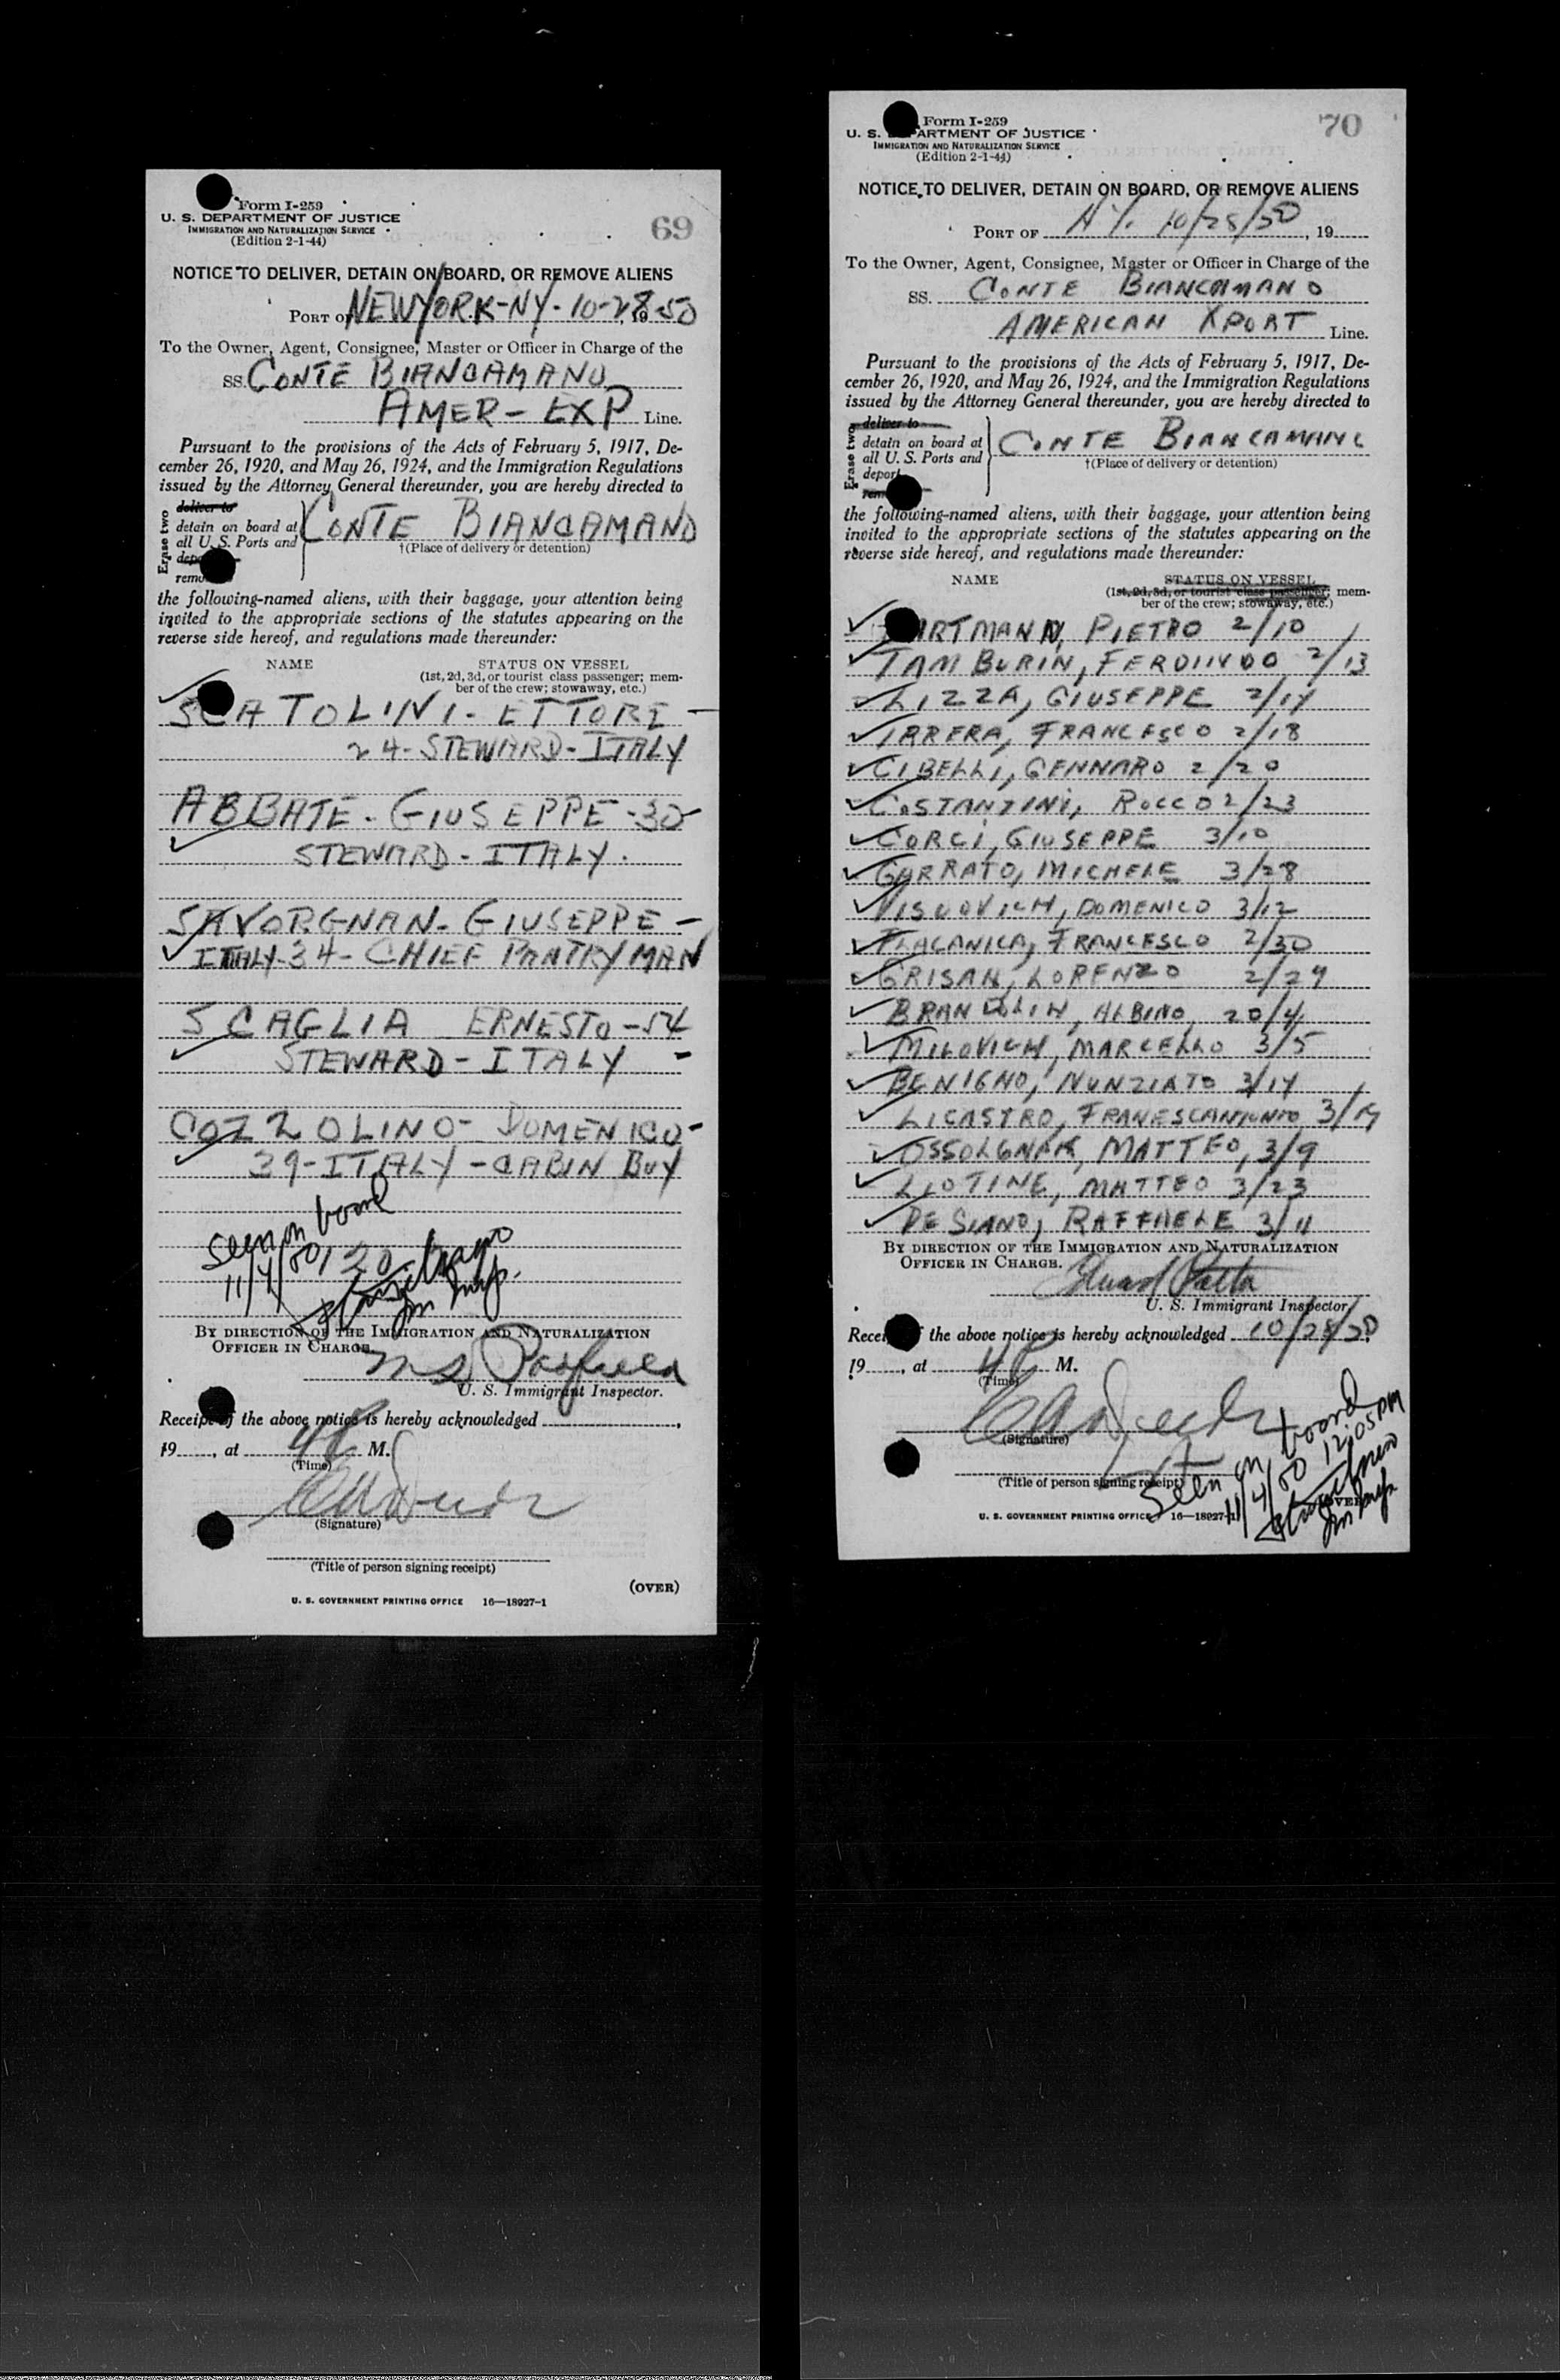 Form I-259
U. S. DEPARTMENT OF JUSTICE
IMMIGRATION AND NATURALIZATION SERVICE
(Edition 2-1-44)
69
NOTICE TO DELIVER, DETAIN ON BOARD, OR REMOVE ALIENS
PORT OF NEW YORK-NY- 10-28-50
To the Owner, Agent, Consignee, Master or Officer in Charge of the
SS. CONTE BIANCAMANO
AMER- EXP Line.
Pursuant to the provisions of the Acts of February 5, 1917, De-
cember 26, 1920, and May 26, 1924, and the Immigration Regulations
issued by the Attorney General thereunder, you are hereby directed to
Erase two
deliver to
detain on board at
all U. S. Ports and
CONTE BIANCAMANO
†(Place of delivery or detention)
the following-named aliens, with their baggage, your attention being
invited to the appropriate sections of the statutes appearing on the
reverse side hereof, and regulations made thereunder:
NAME STATUS ON VESSEL
(1st, 2d, 3d, or tourist class passenger; mem-
ber of the crew; stowaway, etc.)
SCATOLINI- ETTORE -
24- STEWARD- ITALY
ABBATE- GIUSEPPE -30-
STEWARD- ITALY.
SAVORGNAN- GIUSEPPE -
ITALY-34- CHIEF PANTRYMAN
SCAGLIA ERNESTO -54
STEWARD- ITALY -
COZZOLINO- DOMENICO-
39-ITALY -CABIN BOY
Seen on board
11/4/50
BY DIRECTION OF THE IMMIGRATION AND NATURALIZATION
OFFICER IN CHARGE.
U. S. Immigrant Inspector.
Receipt of the above notice is hereby acknowledged
19......, at 4 P M.
(Time)
(Signature)
(Title of person signing receipt)
(OVER)
U. S. GOVERNMENT PRINTING OFFICE 16—18927-1
Form I-259
U. S. DEPARTMENT OF JUSTICE
IMMIGRATION AND NATURALIZATION SERVICE
(Edition 2-1-44)
70
NOTICE TO DELIVER, DETAIN ON BOARD, OR REMOVE ALIENS
PORT OF N Y. 10/28/50, 19
To the Owner, Agent, Consignee, Master or Officer in Charge of the
SS. CONTE BIANCAMANO
AMERICAN XPORT Line.
Pursuant to the provisions of the Acts of February 5, 1917, De-
cember 26, 1920, and May 26, 1924, and the Immigration Regulations
issued by the Attorney General thereunder, you are hereby directed to
Erase two
deliver to
detain on board at
all U. S. Ports and
deport
CONTE BIANCAMANO
†(Place of delivery or detention)
the following-named aliens, with their baggage, your attention being
invited to the appropriate sections of the statutes appearing on the
reverse side hereof, and regulations made thereunder:
NAME STATUS ON VESSEL
(1st, 2d, 3d, or tourist class passenger; mem-
ber of the crew; stowaway, etc.)
PIETRO 2/10
TAMBURIN, FERDINDO 2/13
LIZZA, GIUSEPPE 2/14
IRRERA, FRANCESCO 2/18
CIBELLI, GENNARO 2/20
COSTANTINI, ROCCO 2/23
CORCI, GIUSEPPE 3/10
GARRATO, MICHELE 3/28
VISCOVICH, DOMENICO 3/12
PLACANICA, FRANCESCO 2/30
GRISAN, LORENZO 2/29
BRANDOLIN, ALBINO, 20/4
MILOVICH, MARCELLO 3/5
BENIGNO, NUNZIATO 3/14
LICASTRO, FRANESCANTONIO 3/19
OSSOLGNAK, MATTEO, 3/9
LIOTINE, MATTEO 3/23
DE SIANO, RAFFAELE 3/11
BY DIRECTION OF THE IMMIGRATION AND NATURALIZATION
OFFICER IN CHARGE.
U. S. Immigrant Inspector
Receipt of the above notice is hereby acknowledged 10/28/50
19......, at 4 P M.
(Time)
(Signature)
(Title of person signing receipt)
Seen on board
11/4/50 12:05 PM
(OVER)
U. S. GOVERNMENT PRINTING OFFICE 16—18927-1